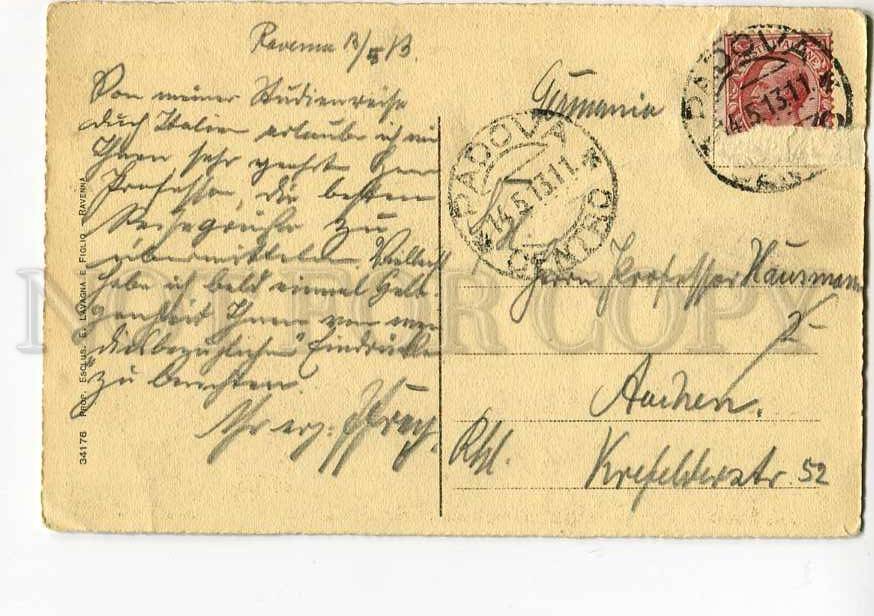 Ravenna 13/5 13.
Von meiner Studienreise
durch Italien erlaube ich mir
Ihnen sehr geehrter Herr
Professor, die besten
Reisegrüße zu
übermitteln. Vielleicht
habe ich bald einmal Gele-
genheit Ihnen von
diesbezüglichen Eindrücken
zu berichten.
Ihr erg.
34176 PROP. ESCLUS. E. LAVAGNA E FIGLIO - RAVENNA
Germania
PADOVA
14.5.13.11
CENTRO
PADOVA
14.5.13.11
Herrn Professor Hausmann
Aachen.
Rhl.
Krefelderstr. 52
NOT FOR COPY